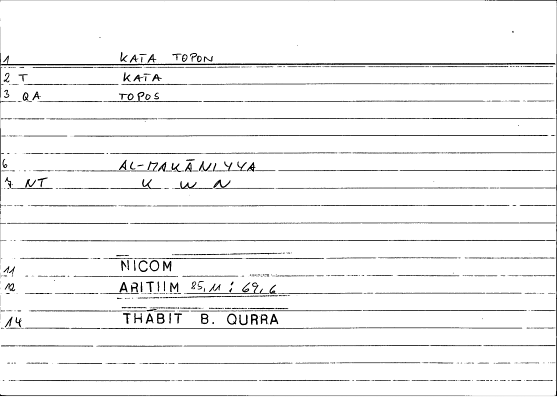 1 KATA TOPON
2 T KATA
3 QA TOPOS
6 AL-MAKĀNIYYA
7 NT K W N
11 NICOM
12 ARITHM 25,11 : 69,6
14 THABIT B. QURRA